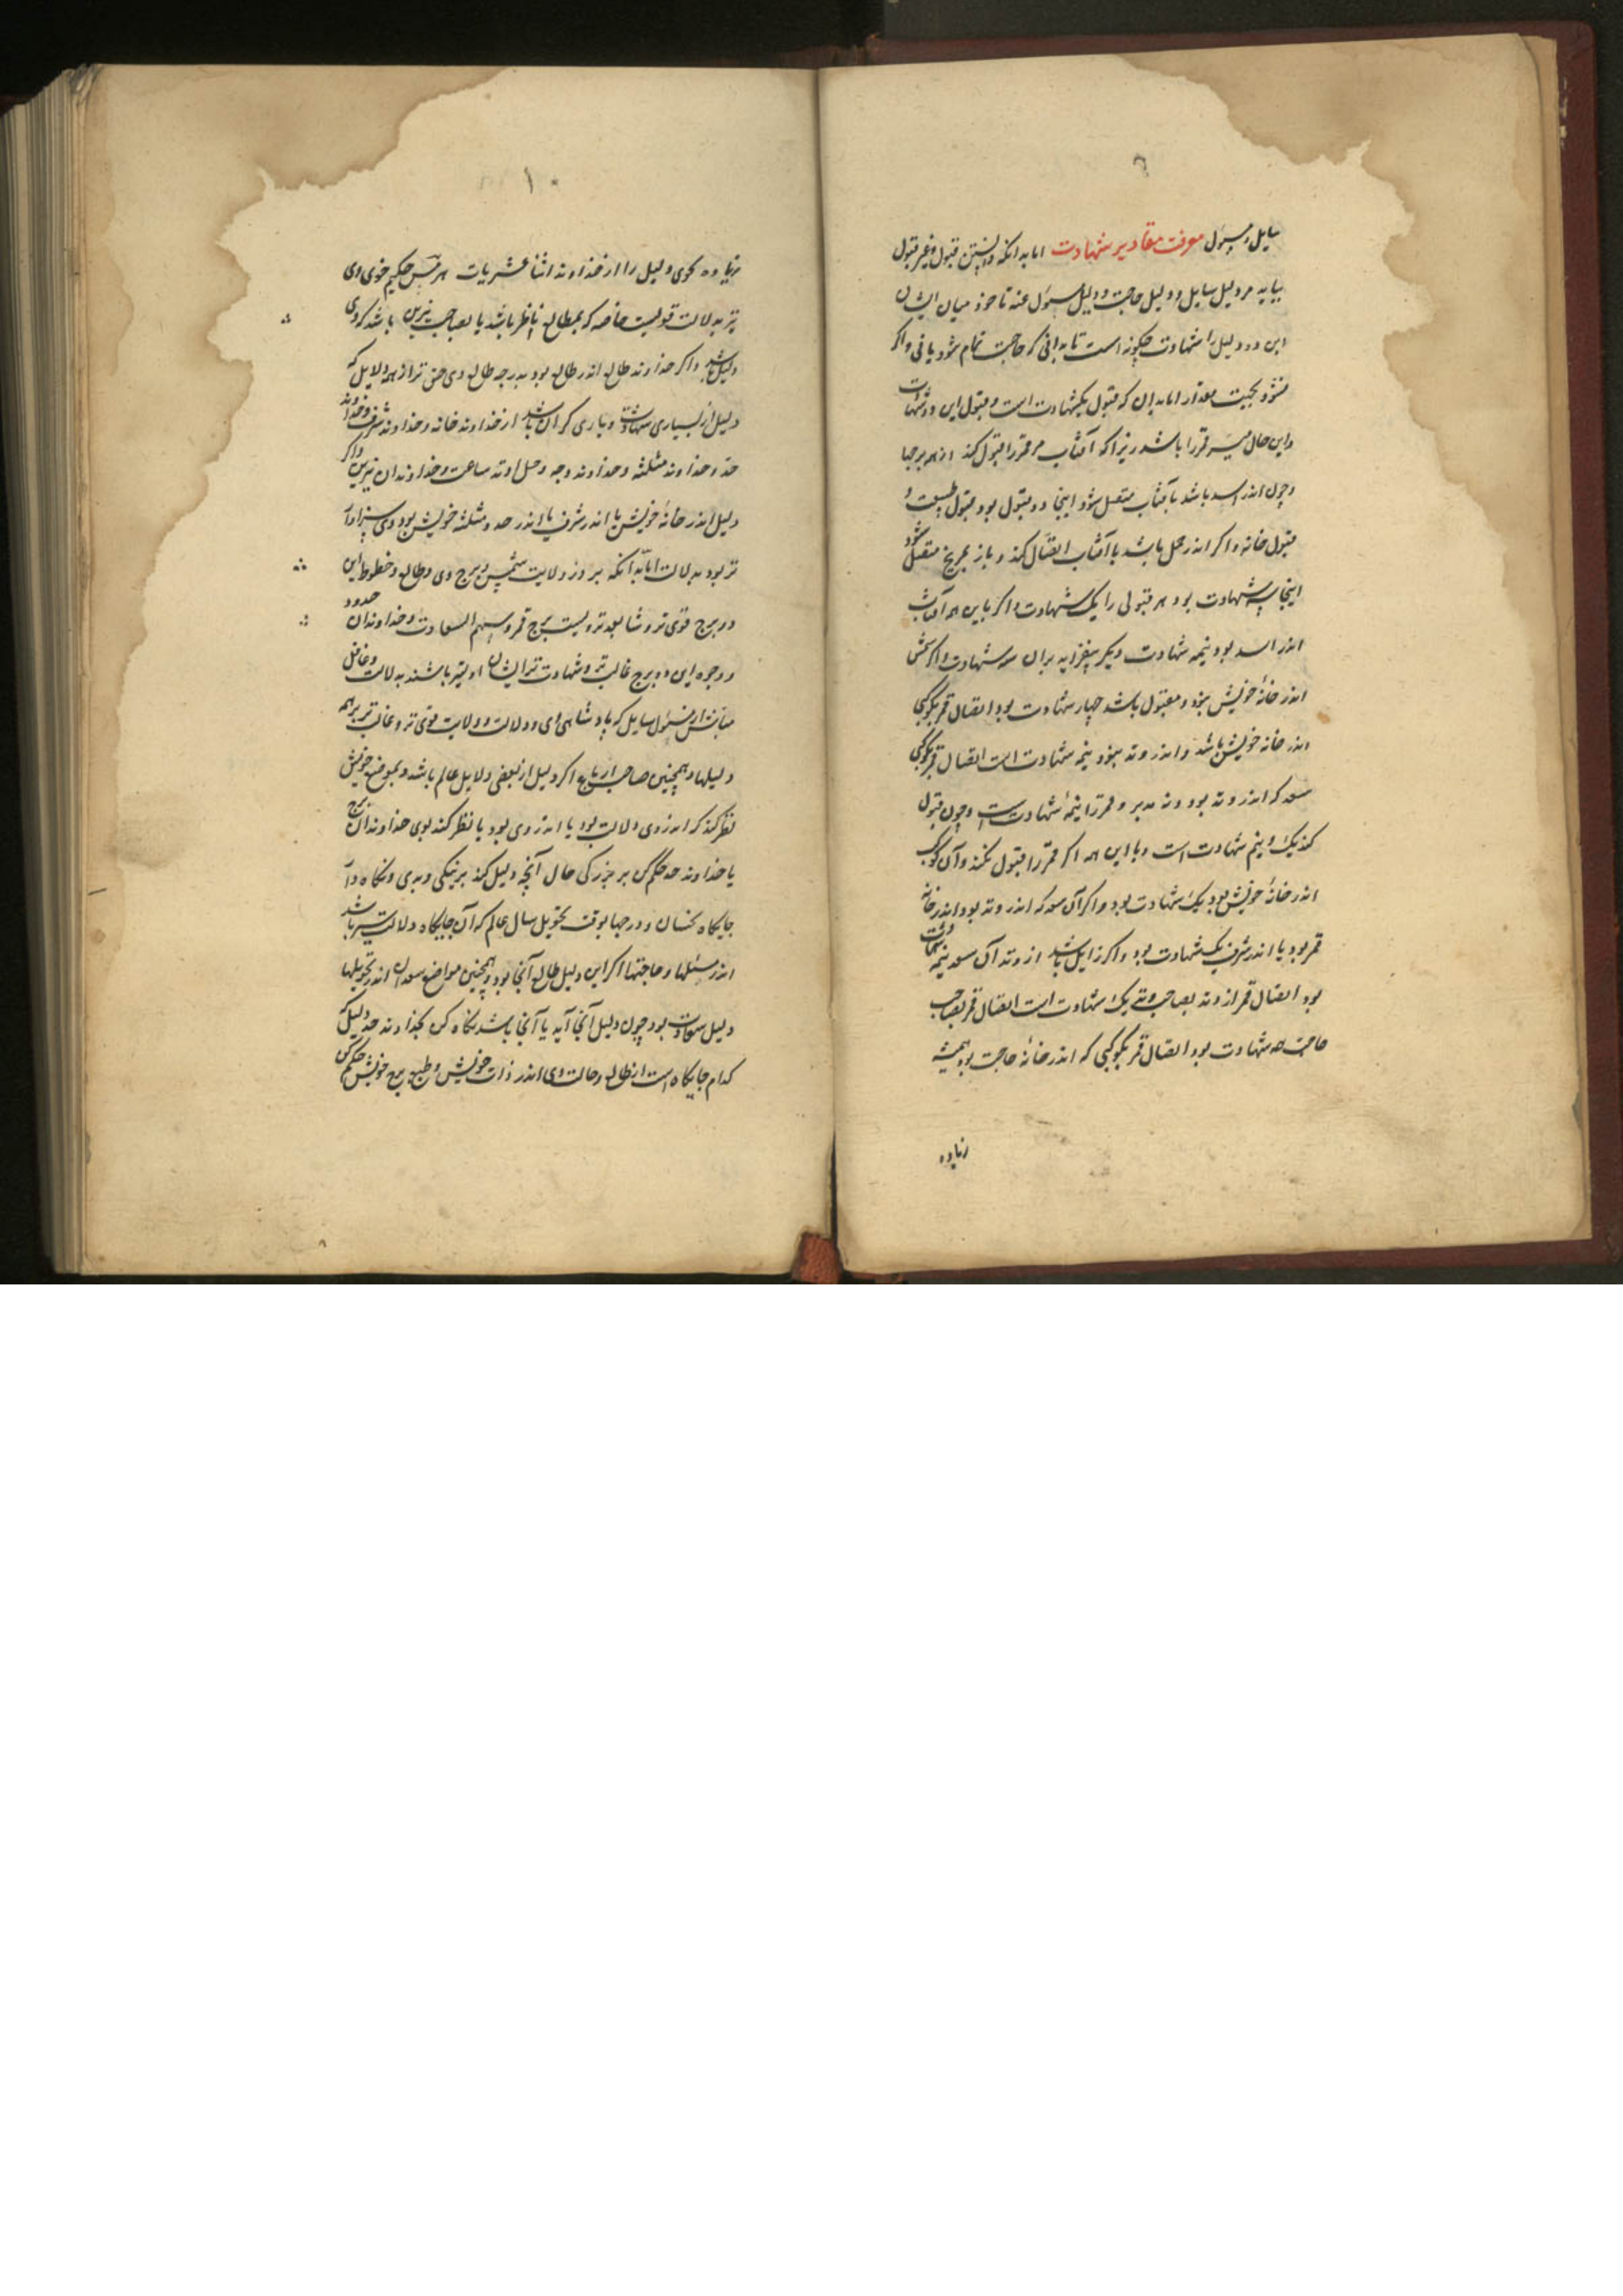 ۹
سایل و مسؤل معرفت مقادیر شهادت اما بدانکه دانستن قبول و غیر قبول
بباید مر دلیل سایل و دلیل حاجت و دلیل مسؤل عنه تا خود میان ایشان
این دو دلیل را شهادت چگونه است تا بدانی که حاجت تمام شود یا نی و اگر
نشود بجهت مقدار اما بدان که قبول یک شهادت است و قبول این دو شهادت
و این حال مر قمر را باشد زیرا که آفتاب مر قمر را قبول کند از همه برجها
و چون اندر اسد باشد بآفتاب متصل شود اینجا دو قبول بود قبول طبیعت و
قبول خانه و اگر اندر حمل باشد با آفتاب اتصال کند و باز بمریخ متصل شود
اینجا سه شهادت بود هر قبولی را یک شهادت و اگر با این همه آفتاب
اندر اسد بود نیمه شهادت دیگر بیفزاید بران سه شهادت و اگر شمس
اندر خانهٔ خویش بود و مقبول باشد چهار شهادت بود اتصال قمر بکوکبی
اندر خانه خویش باشد و اندر وتد بود نیمه شهادت است اتصال قمر بکوکبی
سعد که اندر وتد بود و نه مدبر و قمر را نیمهٔ شهادت است و چون قبول
کند یک و نیم شهادت است و با این همه اگر قمر را قبول نکند و آن کوکب
اندر خانهٔ خویش بود یک شهادت بود و اگر آن سعد که اندر وتد بود اندر خانه
قمر بود یا اندر شرف یک شهادت بود و اگر زایل باشد از وتد آن سعد نیمه شهادت
بود اتصال قمر از وتد بصاحب وتد یک شهادت است اتصال قمر بصاحب
حاجت سه شهادت بود اتصال قمر بکوکبی که اندر خانهٔ حاجت بود همیشه
زیاده
۱۰
زیاده گوی دلیل را از خداوند اثنا عشریات هرمس حکیم خوی وی
تر بدلالت قویست خاصه که بطالع ناظر باشد یا بصاحب نیرین باشد که وی
دلیل باشد و اگر خداوند طالع اندر طالع بود بدرجه طالع وی حق تر از همه دلایل که
دلیل از بسیاری شهادت و یاری گران باشد از خداوند خانه و خداوند شرف و خداوند
حد و خداوند مثلثه و خداوند وجه و خداوند ساعت و خداوندان نیرین و اگر
دلیل اندر خانهٔ خویش یا اندر شرف یا اندر حد و مثلثه خویش بود وی سزاوار
تر بود بدلالت اما بدانکه بروز ولایت شمس و برج وی و طالع و خطوط این
دو برج قوی تر و شب قمر و سهم السعادت و خداوندان حدود
و وجوه این دو برج غالب تر و شهادت تر ایشان اولیتر باشند بدلالت و غافل
مباش از مسؤل سایل که پادشاهی وی و دلالت و ولایت قوی تر و غالب تر بر همه
دلیلها و همچنین صاحب ارباع اگر دلیل از بعضی دلایل عالم باشد و بموضع خویش
نظر کند که اندر وی دلالت بود یا اندر وی بود یا نظر کند بوی خداوند آن برج
یا خداوند حد حکم کن بر بزرگی حال آنچه دلیل کند بر نیکی و بدی و نگاه دار
جایگاه نحسان و درجها بوقت تحویل سال عالم که آن جایگاه دلالت باشد
اندر مسئلها و حاجتها اگر این دلیل طالع آنجا بود و همچنین مواضع سعدان اندر تحویلها
دلیل سعادت بود چون دلیل آنجا آید یا آنجا باشد نگاه کن بخداوند حد دلیل که
کدام جایگاه است از طالع و حالت وی اندر ذات خویش و طبع برج خویش حکم کن